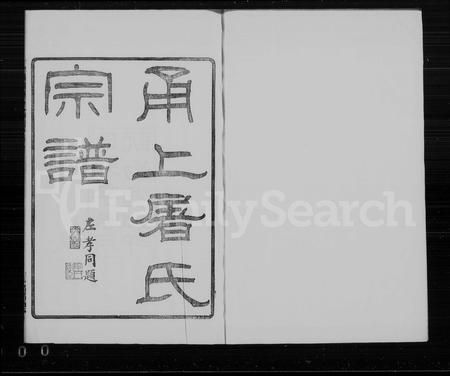 甬上屠氏
宗譜
左孝同題
FamilySearch
0 0